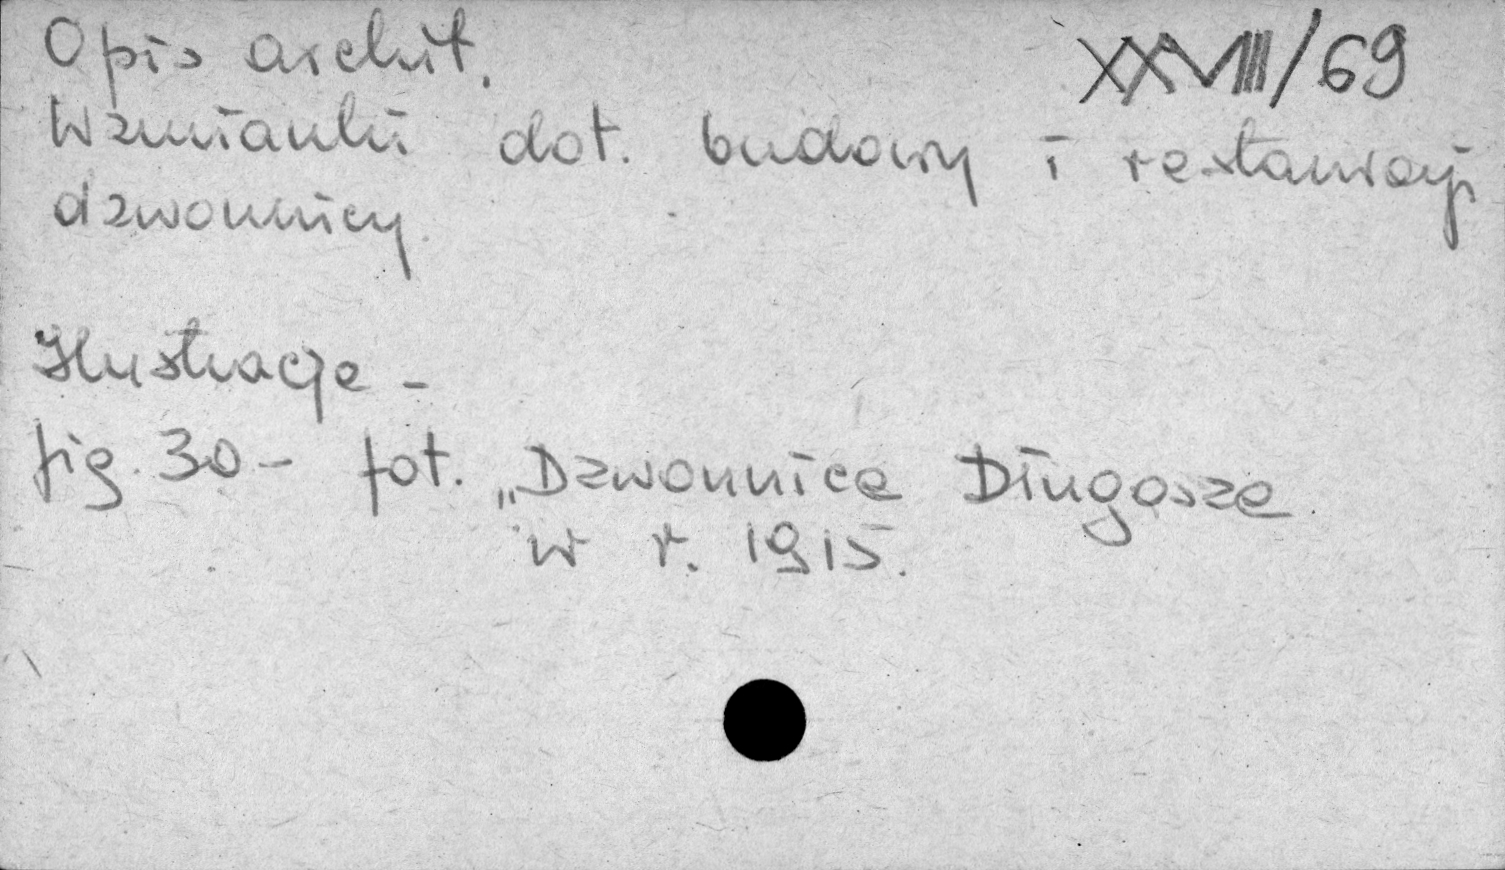 Opis archit.
XXVIII/69
Wzmianki dot. budowy i restauracji
dzwonnicy.
Ilustracje -
fig. 30 - fot. „Dzwonnica Długosza
w r. 1915.